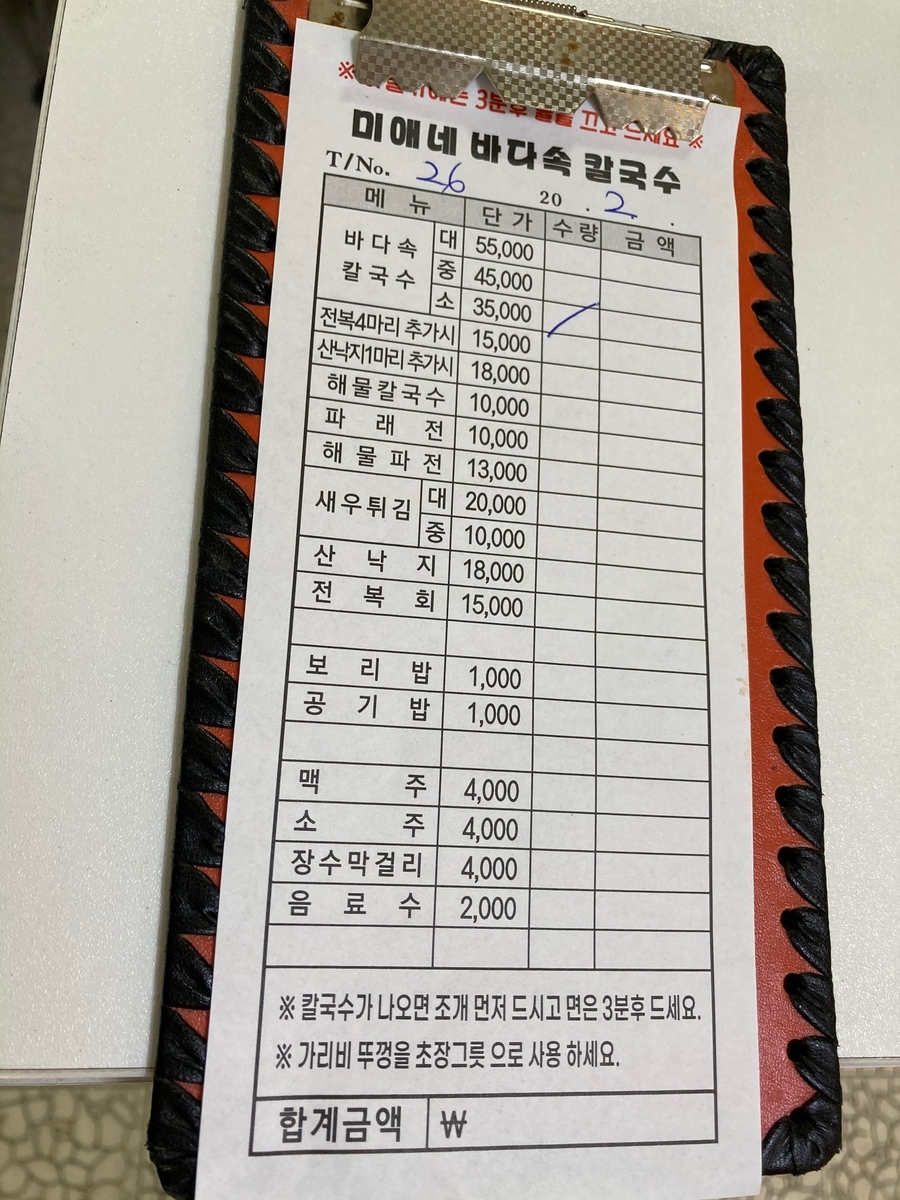 ※ 3분후 불을 끄고 드세요 ※
미애네 바다속 칼국수
T/No. 26 20 . 2 . .
메 뉴 단 가 수 량 금 액
바다속 칼국수 대 55,000
중 45,000
소 35,000
전복4마리 추가시 15,000
산낙지1마리 추가시 18,000
해물칼국수 10,000
파 래 전 10,000
해 물 파 전 13,000
새우튀김 대 20,000
중 10,000
산 낙 지 18,000
전 복 회 15,000
보 리 밥 1,000
공 기 밥 1,000
맥 주 4,000
소 주 4,000
장수막걸리 4,000
음 료 수 2,000
※ 칼국수가 나오면 조개 먼저 드시고 면은 3분후 드세요.
※ 가리비 뚜껑을 초장그릇 으로 사용 하세요.
합계금액 ₩